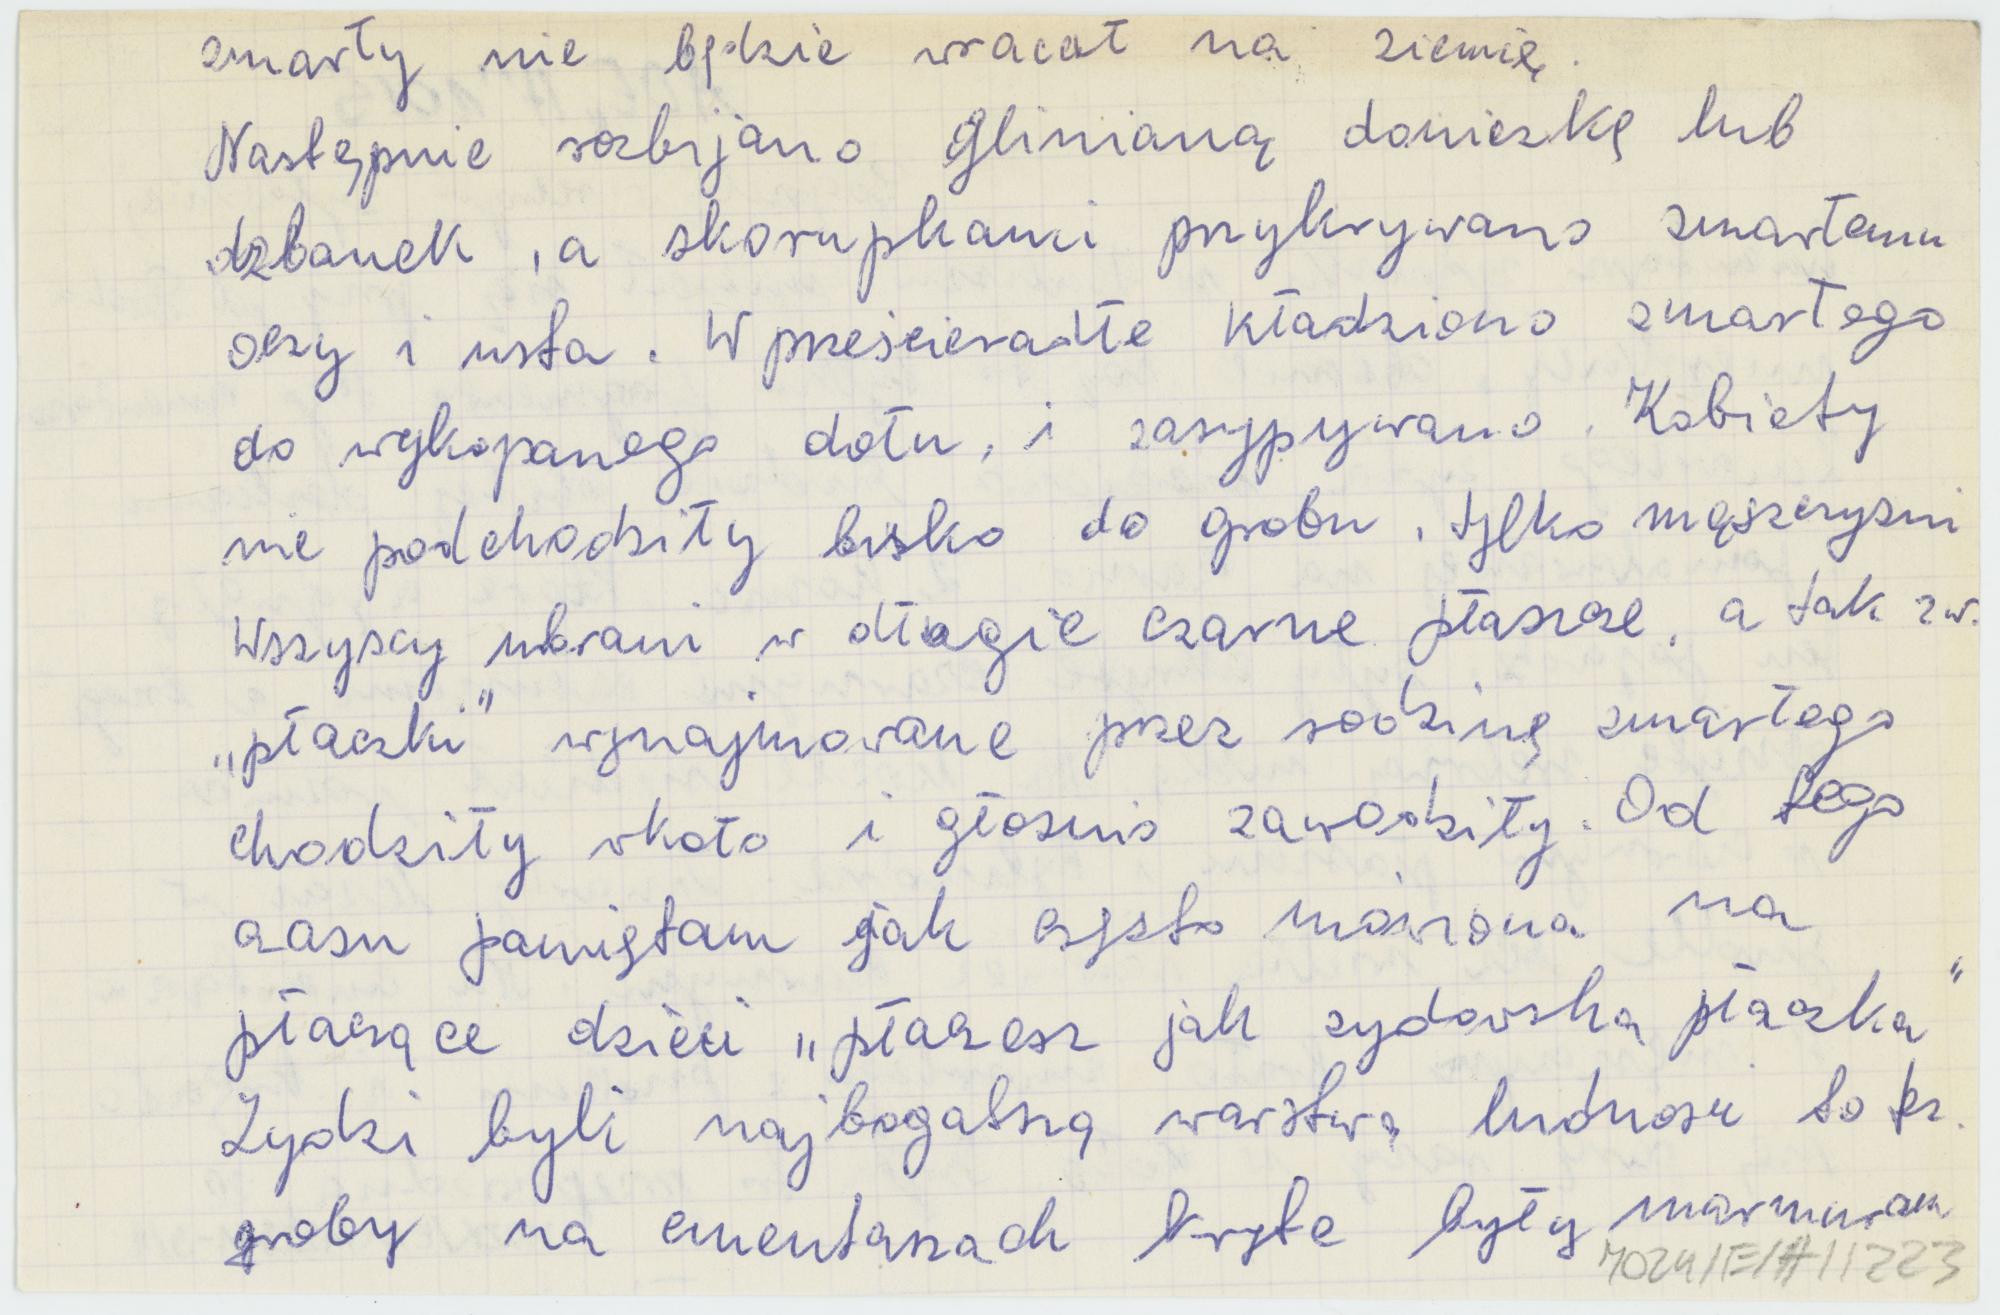 zmarły nie będzie wracał na ziemię.
Następnie rozbijano glinianą doniczkę lub
dzbanek, a skorupkami przykrywano zmarłemu
oczy i usta. W prześcieradle kładziono zmarłego
do wykopanego dołu, i zasypywano. Kobiety
nie podchodziły blisko do grobu, tylko mężczyzni
Wszyscy ubrani w długie czarne płaszcze, a tak zw.
„płaczki" wynajmowane przez rodzinę zmarłego
chodziły wkoło i głosno zawodziły. Od tego
czasu pamiętam jak często mówiona na
płaczące dzieci „płaczesz jak zydowska płaczka"
Żydzi byli najbogatszą warstwą ludnosci to tez.
groby na cmentarzach kryte były marmurem
MOZN/E/A/11223